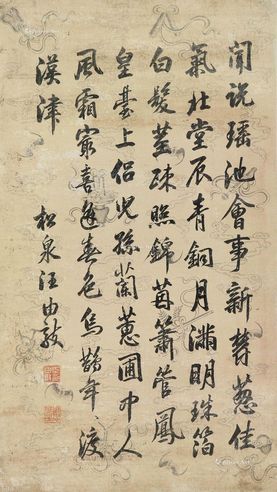 聞說瑤池會事新鬱葱佳
氣北堂辰青銅月滿明珠箔
白髮莖疎照錦茵簫管鳳
皇臺上侶兒孫蘭蕙圃中人
風霜㝡喜逢春色烏鵲年〻渡
漢津
松泉汪由敦